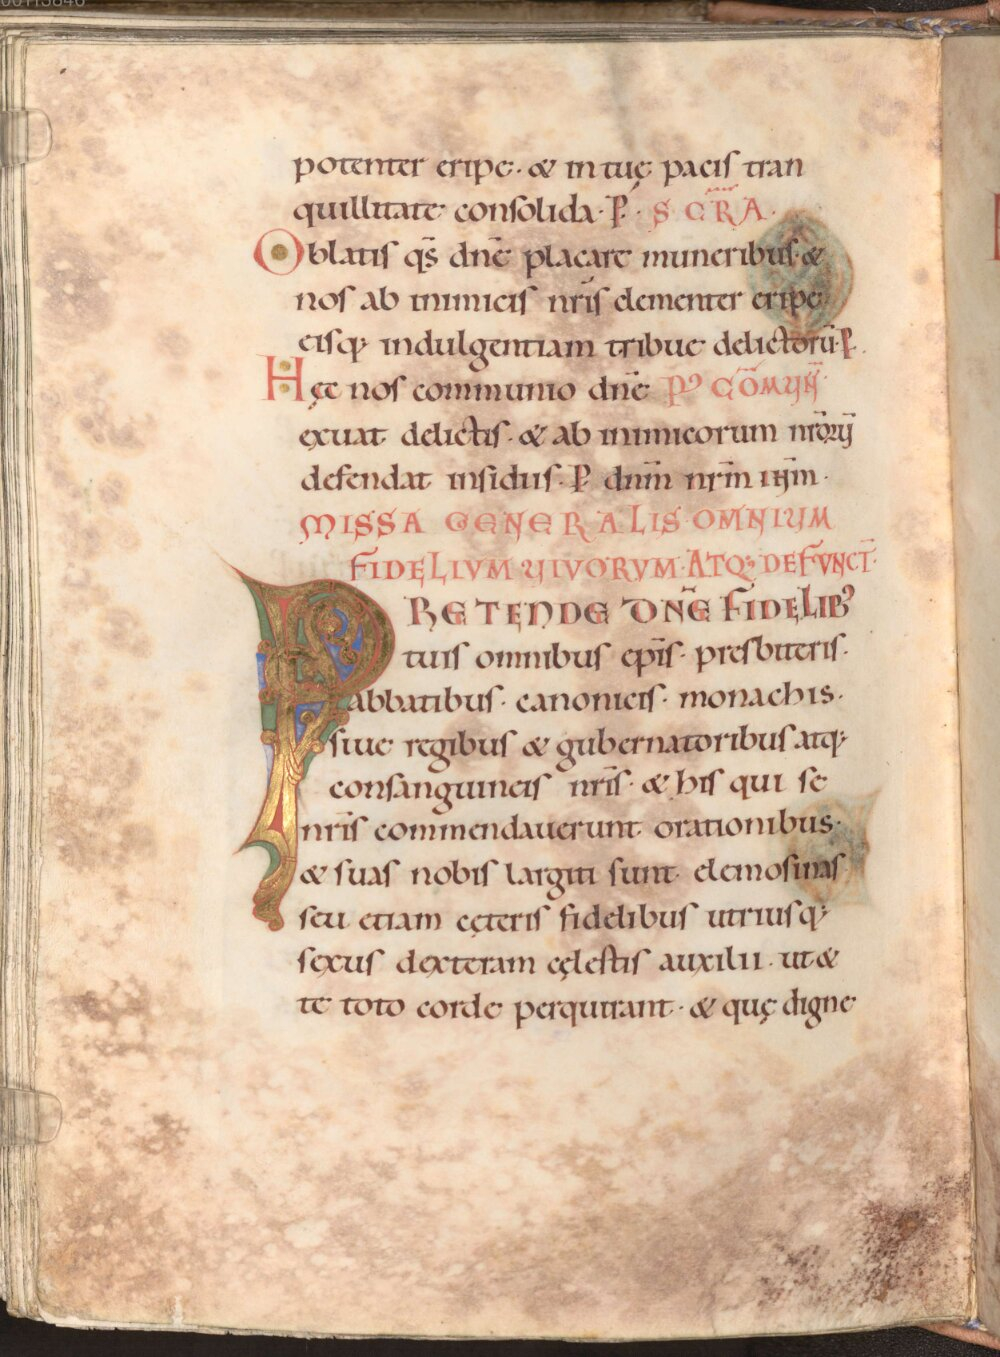 potenter eripe· & in tuę pacis tran
quillitate consolida· P· SECRA·
Oblatis qs̄ dnē placare muneribus· &
nos ab inimicis nr̄is clementer eripe·
eisq· indulgentiam tribue delictorū· P·
Hęc nos communio dnē P' COM̄
exuat delictis· & ab inimicorum nr̄orum
defendat insidiis· P dnm̄ nrm̄ ihm̄·
MISSA GENERALIS OMNIUM
FIDELIVM VIVORVM ATQ; DEFVNCT̄·
PRETENDE DN̄E FIDELIB'
tuis omnibus ep̄is· presbiteris·
abbatibus· canonicis· monachis·
siue regibus & gubernatoribus atq·
consanguineis nr̄is· & his qui se
nr̄is commendauerunt orationibus·
& suas nobis largiti sunt elemosinas
seu etiam cęteris fidelibus utriusq·
sexus dexteram cęlestis auxilii· ut &
te toto corde perquirant· & quę digne